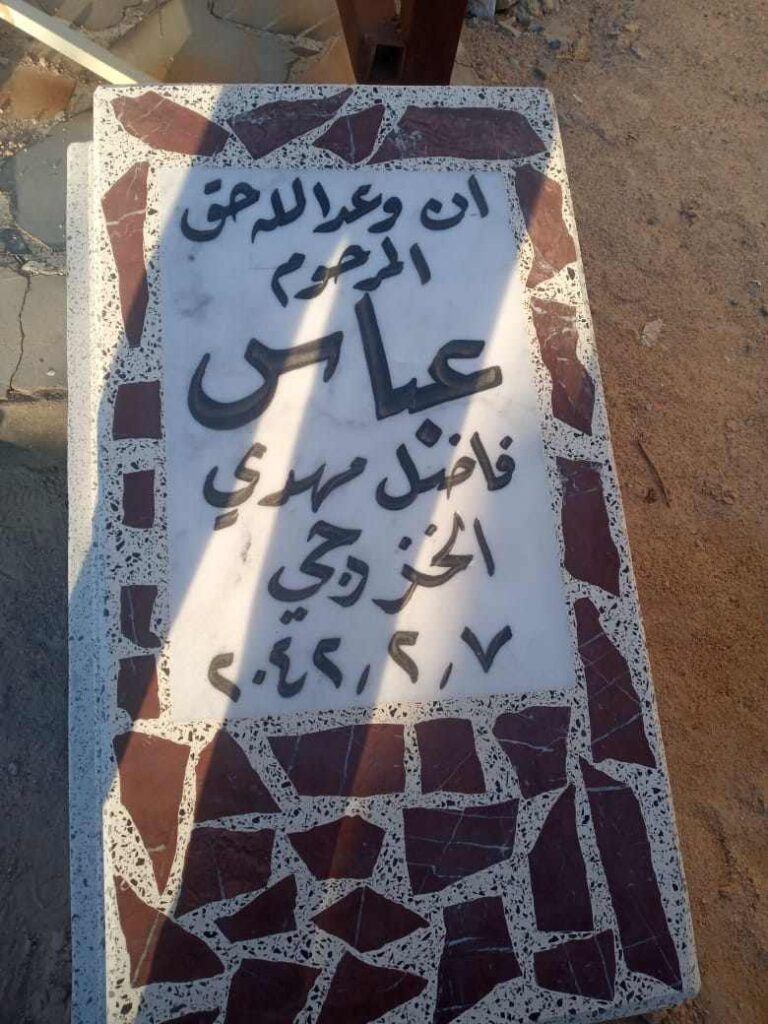 ان وعد الله حق
المرحوم
عباس
فاضل مهدي
الخزرجي
٢٠٤٢,٢,٧